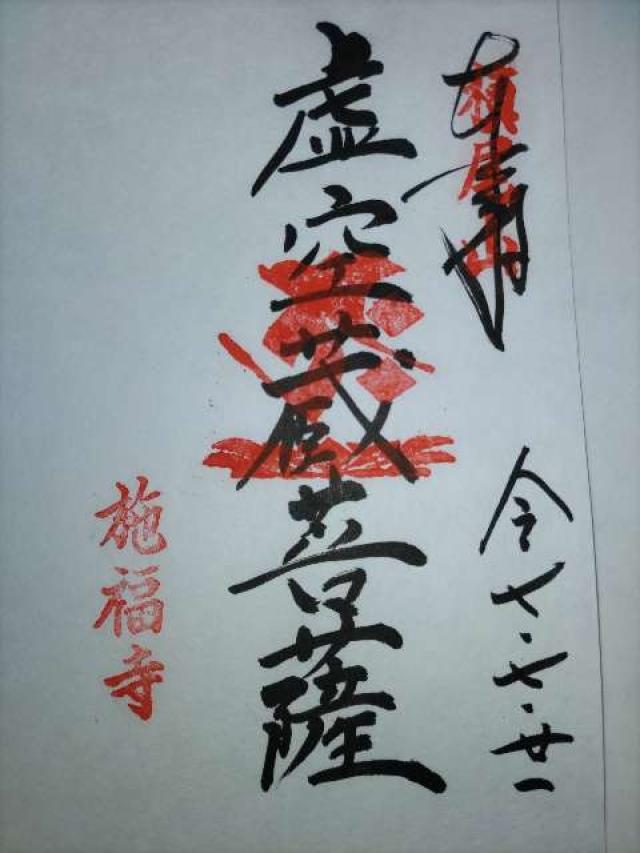 奉拝
槇尾山
令七・七・廿一
虚空蔵菩薩
施福寺